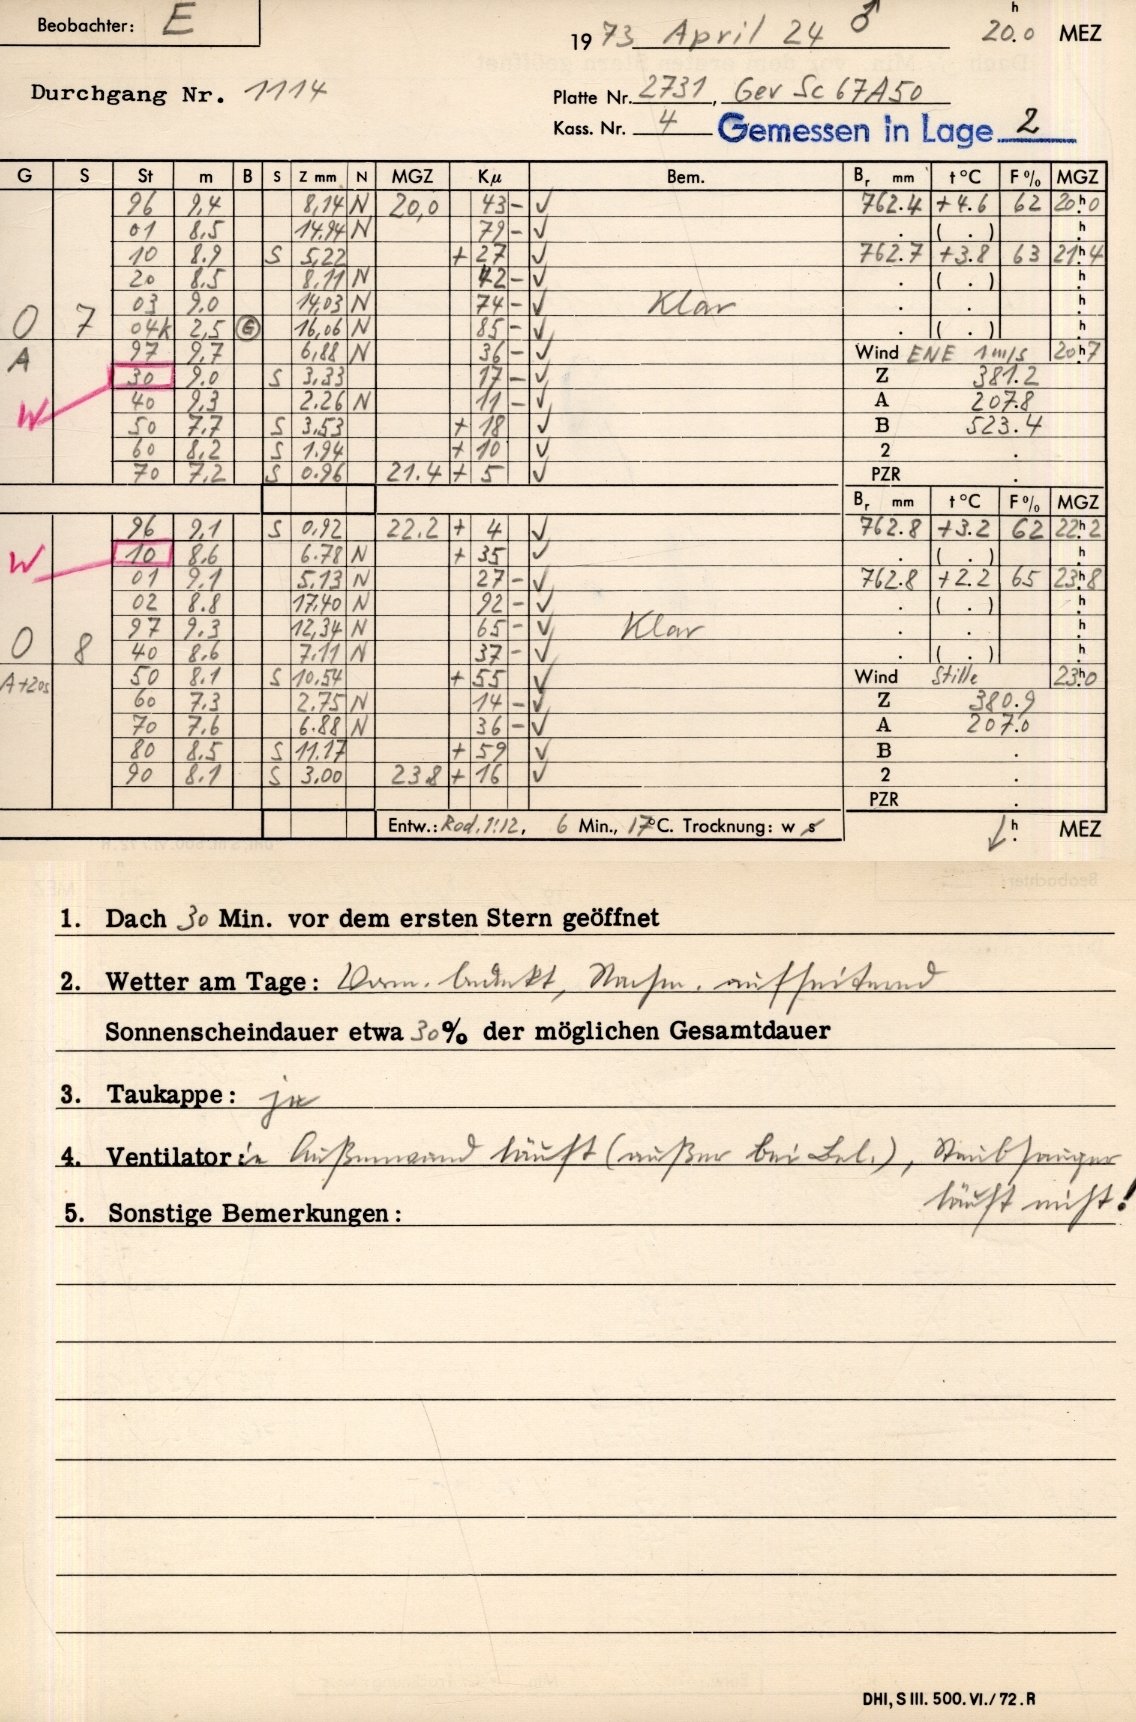 Beobachter: E
19 73 April 24 ♂ 20.0 h MEZ
Durchgang Nr. 1114
Platte Nr. 2731, Gev Sc 67A50
Kass. Nr. 4 Gemessen in Lage 2
G S St m B S Z mm N MGZ Kμ Bem. Br mm t °C F % MGZ
96 9,4 8,14 N 20,0 43 - √ 762.4 +4.6 62 20h0
01 8.5 14.94 N 79 - √ . ( . ) h
10 8.9 S 5,22 + 27 √ 762.7 +3.8 63 21h4
20 8.5 8,11 N 42 - √ . ( . ) h
03 9.0 14,03 N 74 - √ Klar . . h
0 7 04k 2,5 G 16,06 N 85 - √ . ( . ) h
A 97 9,7 6,88 N 36 - √ Wind ENE 1 m/s 20h7
30 9.0 S 3,33 17 - √ Z 381.2
W 40 9,3 2.26 N 11 - √ A 207.8
50 7.7 S 3,53 + 18 √ B 523.4
60 8,2 S 1.94 + 10 √ 2 .
70 7,2 S 0.96 21.4 + 5 √ PZR .
Br mm t °C F % MGZ
96 9,1 S 0,92 22.2 + 4 √ 762.8 +3.2 62 22h2
W 10 8.6 6.78 N + 35 √ . ( . ) h
01 9.1 5,13 N 27 - √ 762.8 +2.2 65 23h8
02 8.8 17,40 N 92 - √ . ( . ) h
97 9.3 12,34 N 65 - √ Klar . . h
0 8 40 8.6 7.11 N 37 - √ . ( . ) h
A+20s 50 8.1 S 10.54 + 55 √ Wind Stille 23h0
60 7.3 2.75 N 14 - √ Z 380.9
70 7.6 6.88 N 36 - √ A 207.0
80 8.5 S 11.17 + 59 √ B .
90 8.1 S 3.00 23.8 + 16 √ 2 .
PZR .
Entw.: Rod. 1:12, 6 Min., 17°C. Trocknung: w s h MEZ
1. Dach 30 Min. vor dem ersten Stern geöffnet
2. Wetter am Tage: Vorm. bedeckt, Nachm. aufheiternd
Sonnenscheindauer etwa 30% der möglichen Gesamtdauer
3. Taukappe: ja
4. Ventilator: in Außenwand läuft (außer bei Bel.), Staubsauger
läuft nicht!
5. Sonstige Bemerkungen:
DHI, S III. 500. VI./72. R